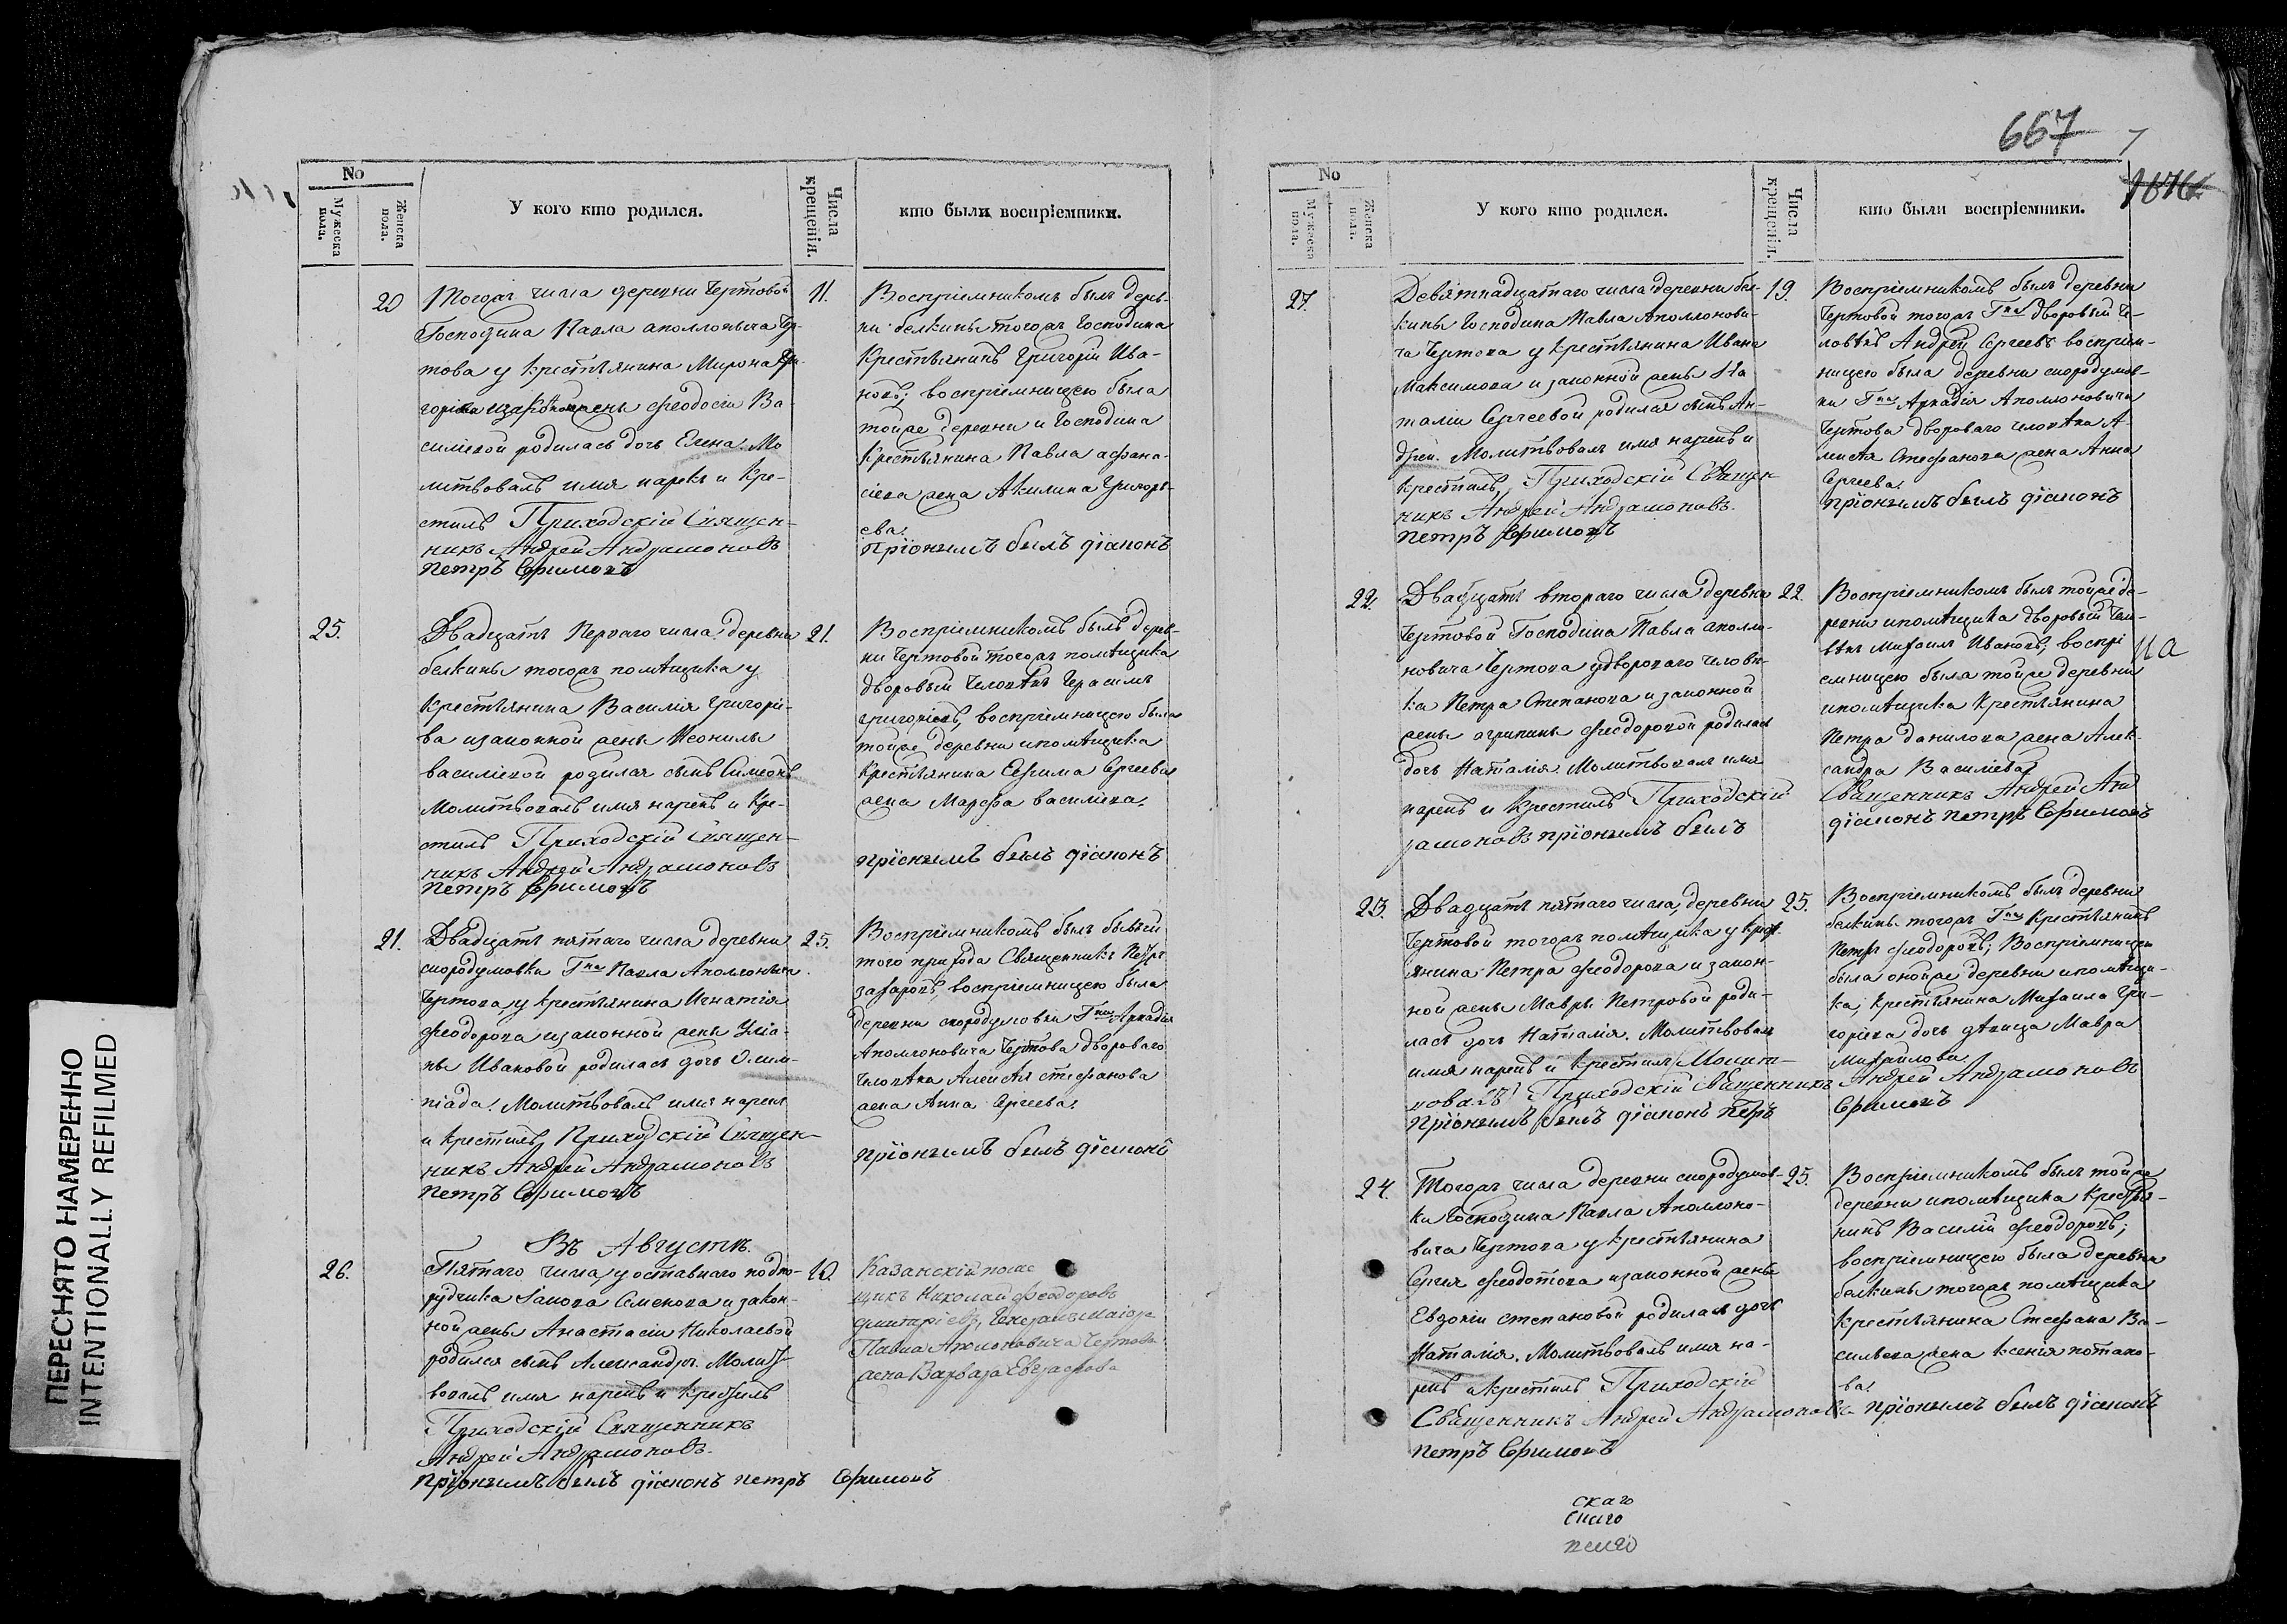 667
7
1676
No
Мужеска пола.
Женска пола.
У кого кто родился.
Числа крещенія.
кто были воспріемники.
20
Тогожъ числа деревни Чертовой
Господина Павла аполлоновича Чер-
това у крестьянина Мирона Гри-
горіева изаконной жены Феодосіи Ва-
силіевой родилась дочь Елена. Мо
литвовалъ имя нарекъ и кре-
стилъ Приходскій Священ-
никъ Андрей Андрамоновъ
петръ Ефимовъ
11.
Воспріемникомъ былъ дерев-
ни белкины тогожъ Господина
Крестьянинъ Григорій Ива-
новъ; воспріемницею была
тойже деревни и Господина
Крестьянина Павла афана-
сіева жена Акилина Григорь-
ева.
при ономъ былъ діаконъ
25.
Двадцать Перваго числа деревни
белкины тогожъ помѣщика у
Крестьянина Василія Григорiе-
ва изаконной жены Неонилы
василіевой родился сынъ Симеонъ
Молитвовалъ имя нарекъ и Кре-
стилъ Приходскій Священ-
никъ Андрей Андрамоновъ
петръ Ефимовъ
21.
Воспріемникомъ былъ дерев-
ни Чертовой тогожъ помѣщика
дворовый человѣкъ Герасимъ
григоріевъ, воспріемницею была
тойже деревни ипомѣщика
Крестьянина Ефима Сергеева
жена Марфа василіева.
при ономъ былъ діаконъ
21.
Двадцать пятаго числа деревни
скородумовки Гна Павла Аполлоновича
Чертова, у крестьянина Игнатія
Феодорова изаконной жены Улья-
ны Ивановой родилась дочь Олим-
піада. Молитвовалъ имя нарекъ
и крестилъ Приходскій Священ-
никъ Андрей Андрамоновъ
петръ Ефимовъ
25.
Воспріемникомъ былъ бывый
того прихода Священникъ Петръ
захаровъ, воспріемницею была
деревни скородумовки Гна Аркадія
Аполлоновича Чертова двороваго
человѣка Алексѣя стефанова
жена Анна Сергеева.
при ономъ былъ діаконъ
Въ Августѣ.
26.
Пятаго числа, у оставнаго подпо-
рутчика Іакова Семенова и закон-
ной жены Анастасіи Николаевой
родился сынъ Александръ. Молит-
вовалъ имя нарекъ и крестилъ
Приходскій Священникъ
Андрей Андрамоновъ.
при ономъ былъ діаконъ петръ Ефимовъ
10.
Казанскій поме
щикъ Николай Феодоровъ
дмитріевъ, Генералъ маіора
Павла Аполоновича Чертова
жена Варвара Евграфова
No
Мужеска пола.
Женска пола.
У кого кто родился.
Числа крещенія.
кто были воспріемники.
27.
Девятнадцатаго числа деревни бел-
кины Господина Павла Аполлонови-
ча Чертова у крестьянина Ивана
Максимова и законной жены На
таліи Сергеевой родился сынъ Ан-
дрей. Молитвовалъ имя нарекъ и
крестилъ, Приходскій Священ-
никъ Андрей Андрамоновъ.
петръ Ефимовъ
19.
Воспріемникомъ былъ деревни
Чертовой тогожъ Гна дворовый Че-
ловѣкъ Андрей Сергеевъ воспріем-
ницею была деревни скородумов-
ки Гна Аркадія Аполлоновича
Чертова двороваго человѣка А-
лексѣя Стефанова жена Анна
Сергеева.
при ономъ былъ діаконъ
22.
Двадцать втораго числа деревни
Чертовой Господина Павла аполло-
новича Чертова у двороваго челове-
ка Петра Степанова и законной
жены агрипины Феодоровой родилась
дочь Наталія. Молитвовалъ имя
нарекъ и крестилъ Приходскій
рамоновъ при ономъ былъ
22.
Воспріемникомъ былъ тойже де-
ревни ипомѣщика дворовый Чело-
вѣкъ Михаилъ Ивановъ; воспрі
емницею была тойже деревни
ипомѣщика Крестьянина
Петра данилова жена Алек-
сандра Василіева
Священникъ Андрей Анд
діаконъ петръ Ефимовъ
на
23.
Двадцать пятаго числа, деревни
Чертовой тогожъ помѣщика у крест-
янина Петра Феодорова и закон-
ной жены Мавры Петровой роди-
лась дочь Наталія. Молитвовалъ
имя нарекъ и крестилъ
Приходскій Священникъ Андрей Андрамоновъ
при ономъ былъ діаконъ петръ Ефимовъ
25.
Воспріемникомъ былъ деревни
белкины тогожъ Гна Крестьянинъ
Петръ Феодоровъ; Воспріемницею
была онойже деревни ипомѣщи-
ка, крестьянина Михаила Гри-
горіева дочь дѣвица Мавра
Михайлова.
24.
Тогожъ числа деревни скородумов-
ки Господина Павла Аполлоно-
вича Чертова у крестьянина
Сергія Феодотова изаконной жены
Евдокіи степановой родилась дочь
Наталія. Молитвовалъ имя на-
рекъ и крестилъ Приходскій
Священникъ Андрей Андрамоновъ
петръ Ефимовъ
25.
Воспріемникомъ былъ тойже
деревни ипомѣщика Крестья-
нинъ Василій Феодоровъ;
воспріемницею была деревни
белкины тогожъ помѣщика
крестьянина Стефана Ва-
сильева жена Ксенія потапо-
ва.
при ономъ былъ діаконъ
скаго
ПЕРЕСНЯТО НАМЕРЕННО
INTENTIONALLY REFILMED